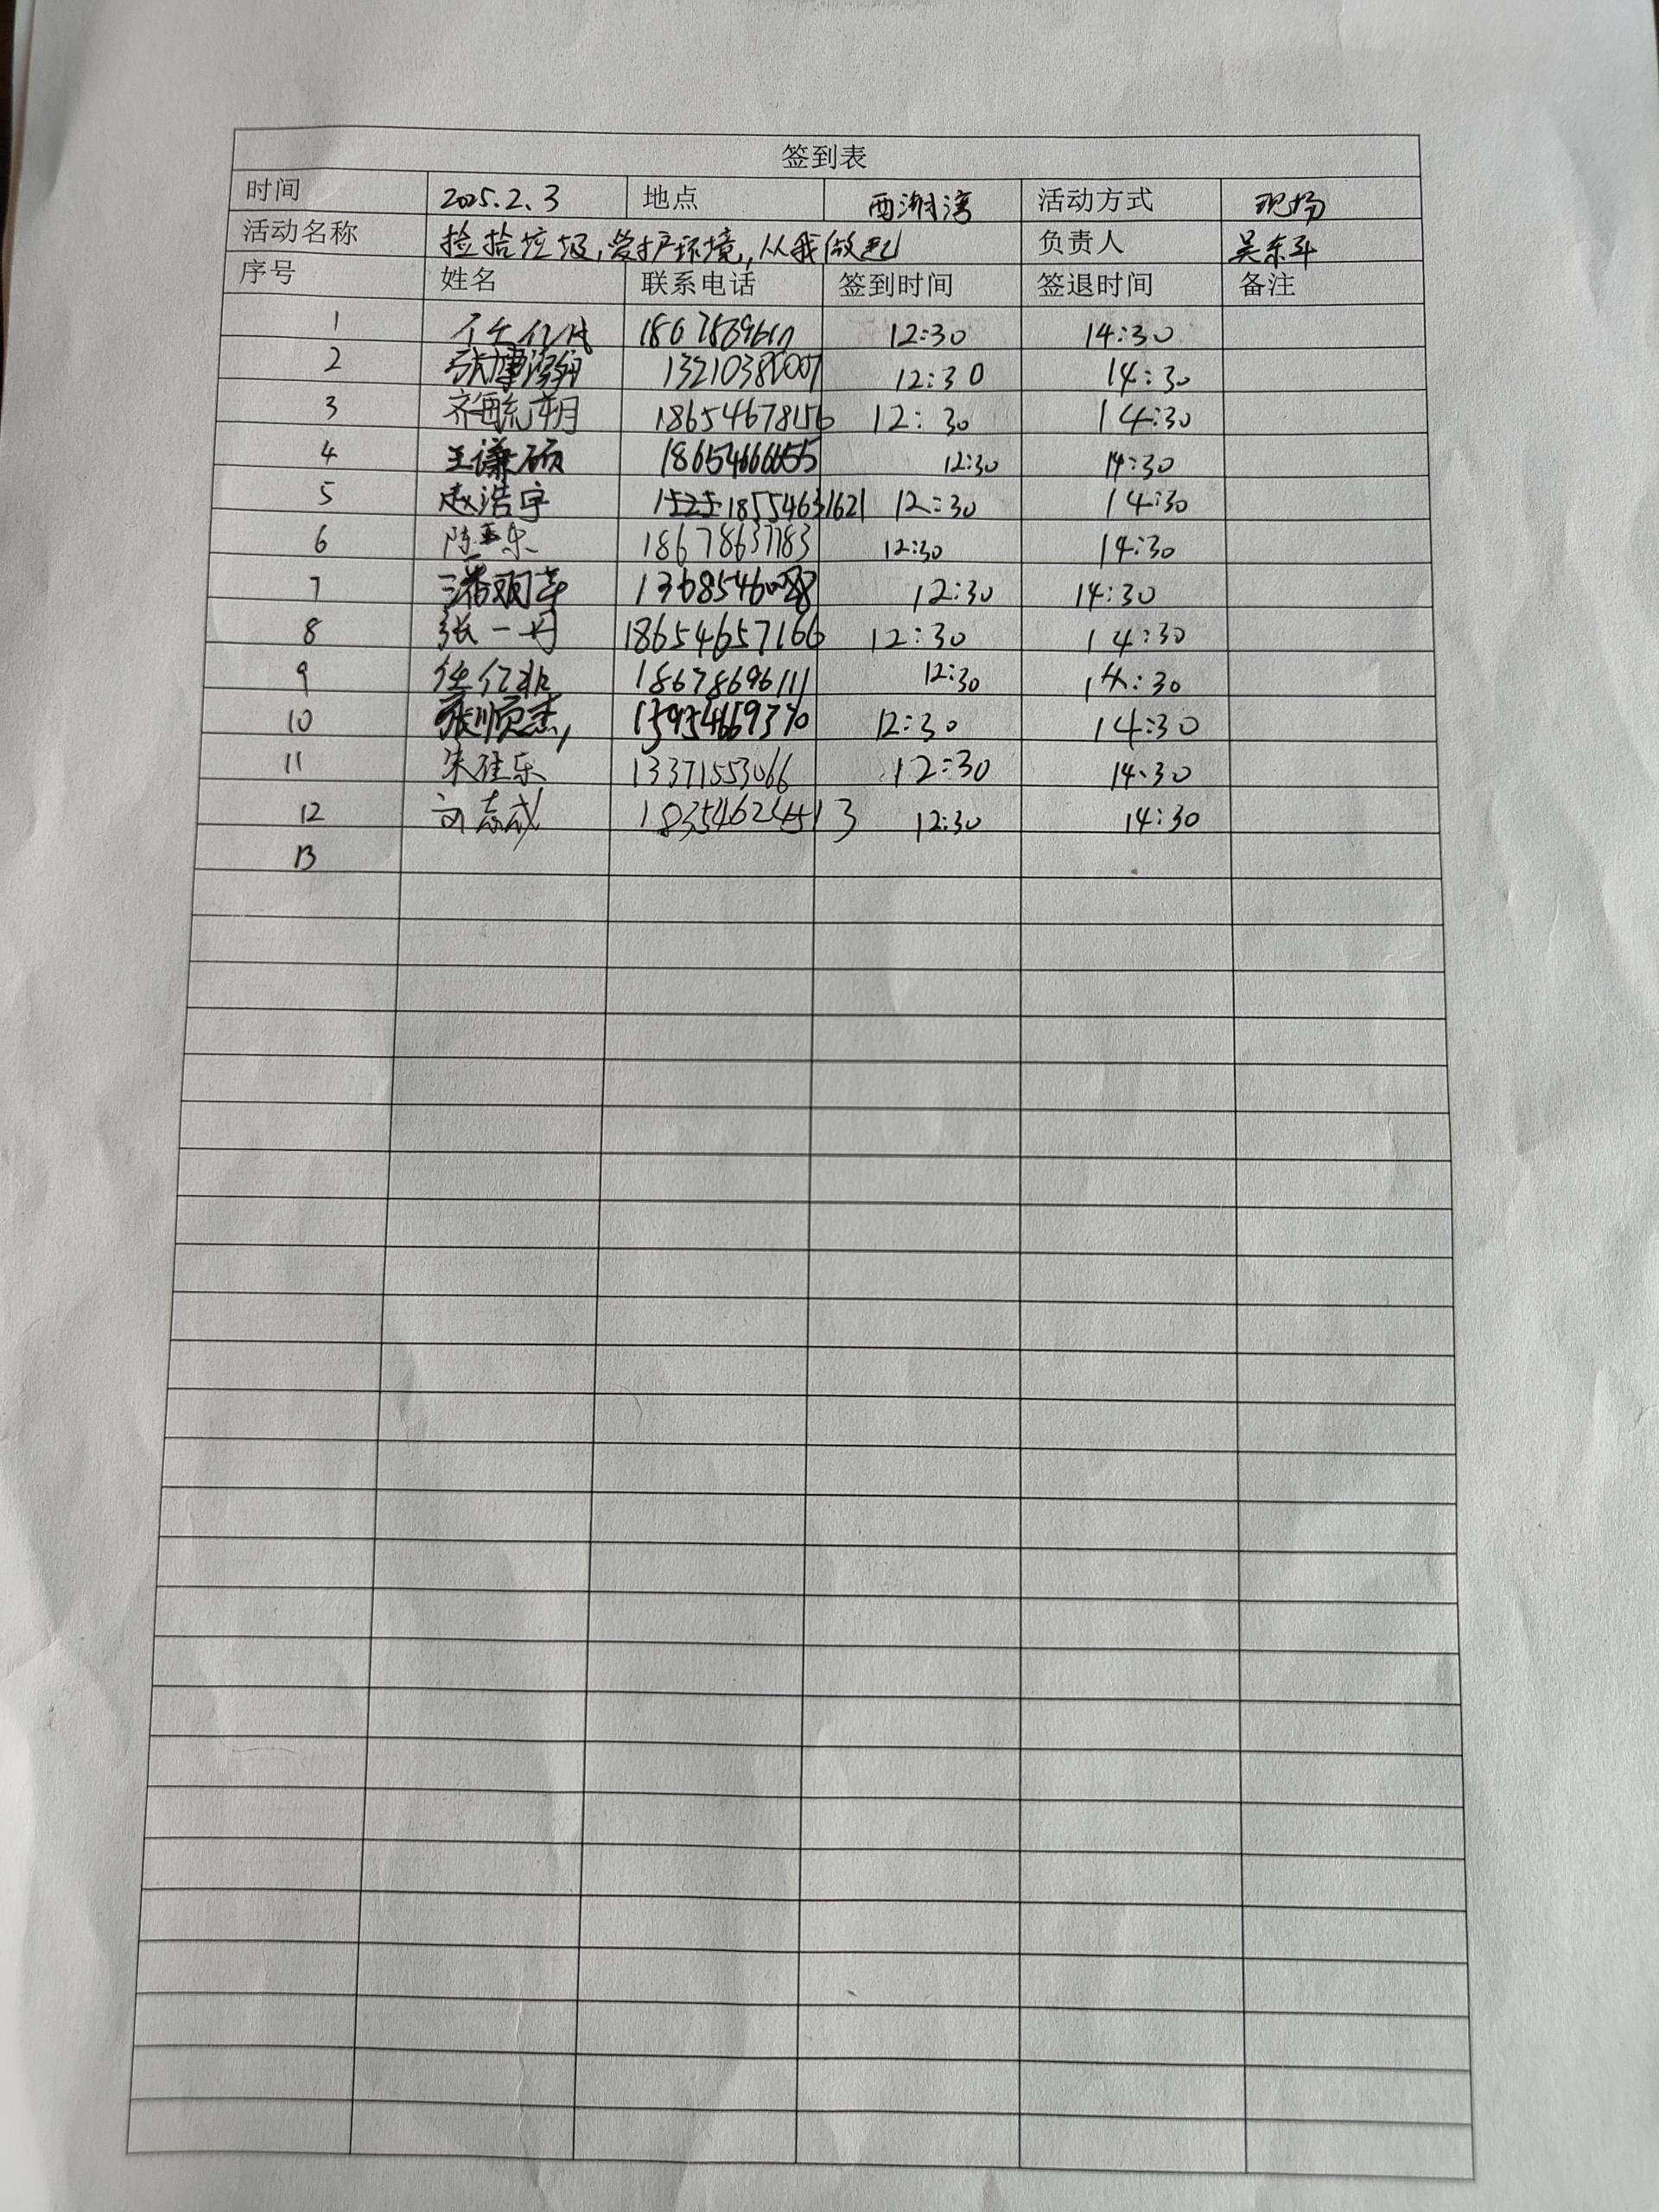 签到表
时间 2025.2.3 地点 西湖湾 活动方式 现场
活动名称 捡拾垃圾,爱护环境,从我做起 负责人 吴东斗
序号 姓名 联系电话 签到时间 签退时间 备注
1 12:30 14:30
2 12:30 14:30
3 12:30 14:30
4 王谦硕 12:30 14:30
5 赵浩宇 18554631621 12:30 14:30
6 18678637783 12:30 14:30
7 12:30 14:30
8 张一丹 18654657166 12:30 14:30
9 任亿非 18678696111 12:30 14:30
10 张顺杰 12:30 14:30
11 朱佳乐 13371553066 12:30 14:30
12 刘志成 12:30 14:30
13